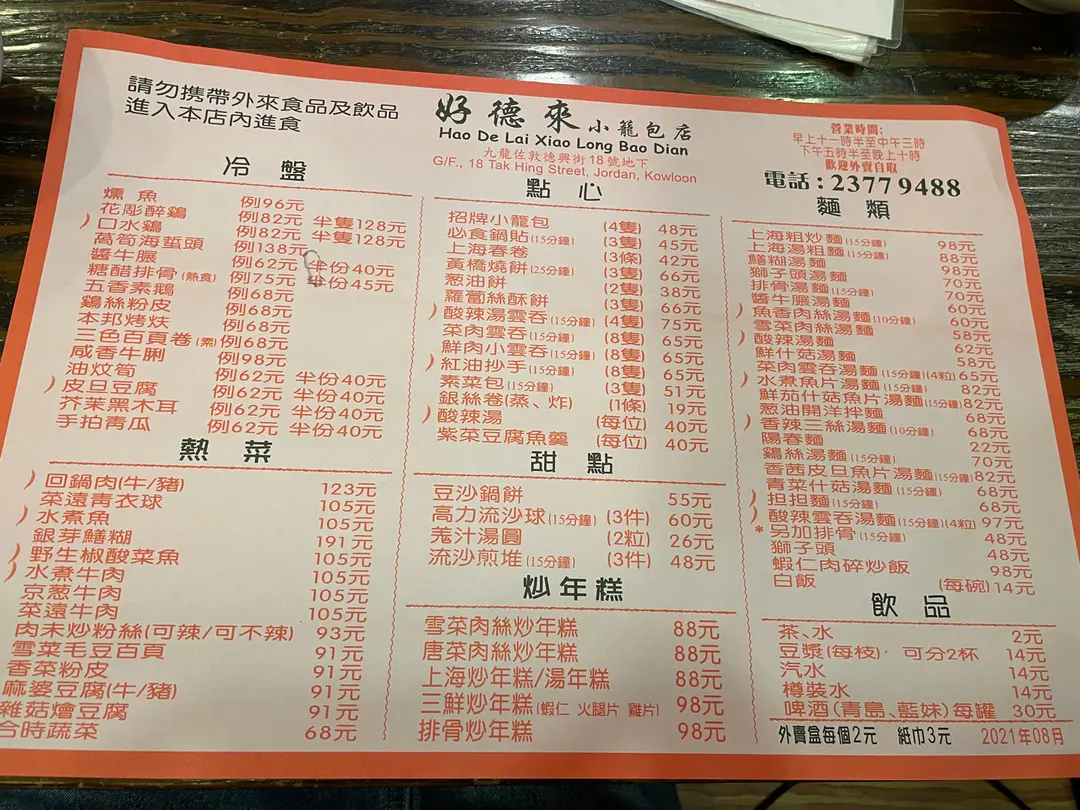 請勿携帶外來食品及飲品
進入本店內進食
好德來小籠包店
Hao De Lai Xiao Long Bao Dian
九龍佐敦德興街18號地下
G/F., 18 Tak Hing Street, Jordan, Kowloon
營業時間:
早上十一時半至中午三時
下午五時半至晚上十時
歡迎外賣自取
電話:2377 9488
冷盤
燻魚 例96元
花彫醉鷄 例82元 半隻128元
口水鷄 例82元 半隻128元
萵筍海蜇頭 例138元
醬牛𦟌 例62元 半份40元
糖醋排骨(熱食) 例75元 半份45元
五香素鵝 例68元
鷄絲粉皮 例68元
本邦烤麩 例68元
三色百頁卷(素) 例68元
咸香牛脷 例98元
油炆筍 例62元 半份40元
皮旦豆腐 例62元 半份40元
芥茉黑木耳 例62元 半份40元
手拍青瓜 例62元 半份40元
熱菜
回鍋肉(牛/豬) 123元
菜遠青衣球 105元
水煮魚 105元
銀芽鱔糊 191元
野生椒酸菜魚 105元
水煮牛肉 105元
京葱牛肉 105元
菜遠牛肉 105元
肉末炒粉絲(可辣/可不辣) 93元
雪菜毛豆百頁 91元
香菜粉皮 91元
麻婆豆腐(牛/豬) 91元
雜菇燴豆腐 91元
合時蔬菜 68元
點心
招牌小籠包 (4隻) 48元
必食鍋貼(15分鐘) (3隻) 45元
上海春卷 (3條) 42元
黃橋燒餅(25分鐘) (3隻) 66元
葱油餅 (2隻) 38元
蘿蔔絲酥餅 (3隻) 66元
酸辣湯雲吞(15分鐘) (4隻) 75元
菜肉雲吞(15分鐘) (8隻) 65元
鮮肉小雲吞(15分鐘) (8隻) 65元
紅油抄手(15分鐘) (8隻) 65元
素菜包(15分鐘) (3隻) 51元
銀絲卷(蒸、炸) (1條) 19元
酸辣湯 (每位) 40元
紫菜豆腐魚羹 (每位) 40元
甜點
豆沙鍋餅 55元
高力流沙球(15分鐘) (3件) 60元
羗汁湯圓 (2粒) 26元
流沙煎堆(15分鐘) (3件) 48元
炒年糕
雪菜肉絲炒年糕 88元
唐菜肉絲炒年糕 88元
上海炒年糕/湯年糕 88元
三鮮炒年糕(蝦仁 火腿片 雞片) 98元
排骨炒年糕 98元
麵類
上海粗炒麵(15分鐘) 98元
上海湯粗麵(15分鐘) 88元
鱔糊湯麵 98元
獅子頭湯麵 70元
排骨湯麵(15分鐘) 70元
醬牛𦟌湯麵 60元
魚香肉絲湯麵(10分鐘) 60元
雪菜肉絲湯麵 58元
酸辣湯麵 62元
鮮什菇湯麵 58元
菜肉雲吞湯麵(15分鐘)(4粒) 65元
水煮魚片湯麵(15分鐘) 82元
鮮茄什菇魚片湯麵(15分鐘) 82元
葱油開洋拌麵 68元
香辣三絲湯麵(10分鐘) 68元
陽春麵 22元
鷄絲湯麵(15分鐘) 70元
香茜皮旦魚片湯麵(15分鐘) 82元
青菜什菇湯麵(15分鐘) 68元
担担麵(15分鐘) 68元
酸辣雲吞湯麵(15分鐘)(4粒) 97元
*另加排骨(15分鐘) 48元
獅子頭 48元
蝦仁肉碎炒飯 98元
白飯 (每碗) 14元
飲品
茶、水 2元
豆漿(每枝),可分2杯 14元
汽水 14元
樽裝水 14元
啤酒(青島、藍妹)每罐 30元
外賣盒每個2元 紙巾3元 2021年08月